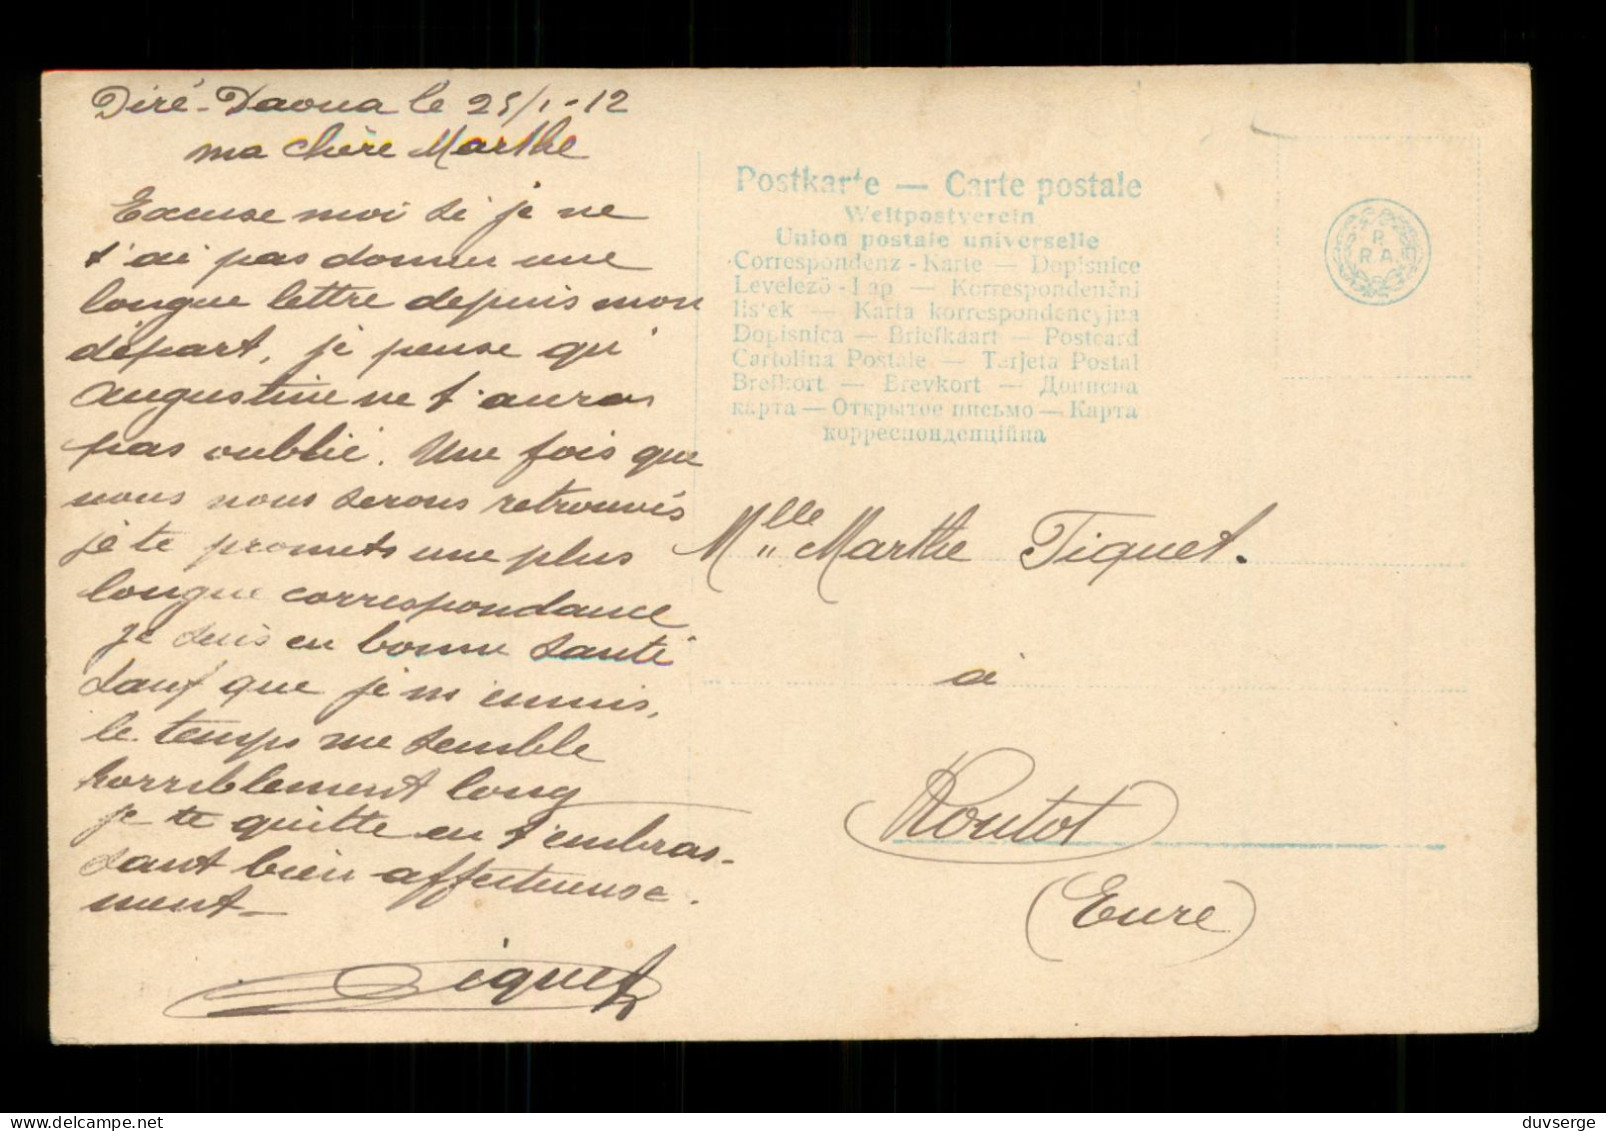 Diré-Daoua le 25/1-12
ma chère Marthe
Excuse moi si je ne
t'ai pas donner une
longue lettre depuis mon
départ, je pense qu'
Augustine ne t'auras
pas oublié. Une fois que
nous nous serons retrouvés
je te promets une plus
longue correspondance
Je suis en bonne santé
sauf que je m'ennuis,
le temps me semble
horriblement long
je te quitte en t'embras-
sant bien affectueuse.
ment_
Tiquet
Postkarte — Carte postale
Weltpostverein
Union postale universelle
Correspondenz-Karte — Dopisnice
Levelező-Lap — Korrespondenční
lístek — Karta korrespondencyjna
Dopisnica — Briefkaart — Postcard
Cartolina Postale — Tarjeta Postal
Brefkort — Brevkort — Дописна
карта — Открытое письмо — Карта
корреспонденційна
P.
R A.
Mlle Marthe Tiquet.
à
Routot
(Eure)
duvserge